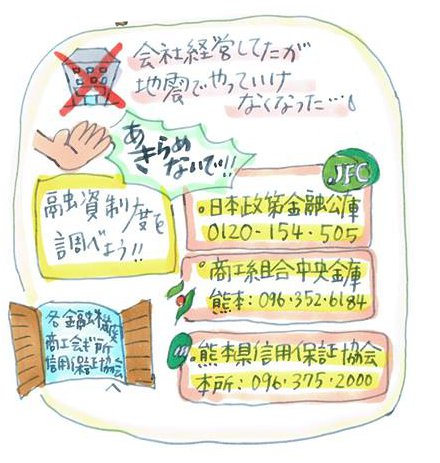 会社経営してたが
地震でやっていけ
なくなった…
あきらめ
ないで!!
融資制度を
調べよう!!
JFC
・日本政策金融公庫
0120-154-505
・商工組合中央金庫
熊本:096・352・6184
・熊本県信用保証協会
本所:096・375・2000
各金融機関
商工会議所
信用保証協会
へ